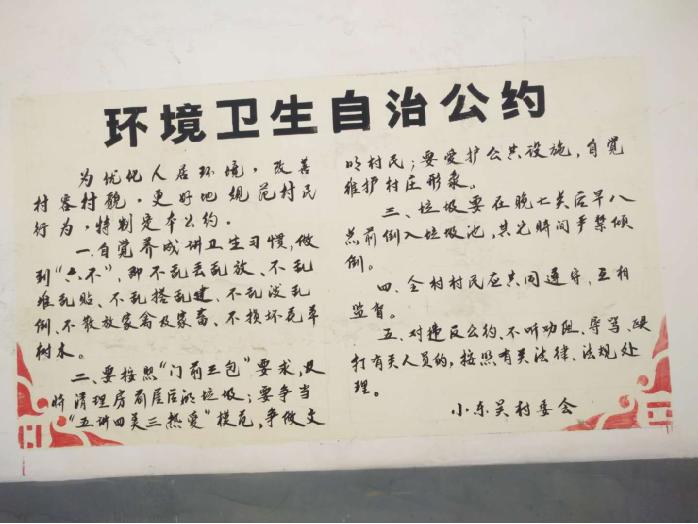 环境卫生自治公约
为优化人居环境，改善
村容村貌，更好地规范村民
行为，特制定本公约。
一.自觉养成讲卫生习惯，做
到“六不”，即不乱丢乱放、不乱
堆乱贴、不乱搭乱建、不乱泼乱
倒、不散放家禽及家畜、不损坏花草
树木。
二、要按照“门前三包”要求，及
时清理房前屋后的垃圾；要争当
“五讲四美三热爱”模范，争做文
明村民；要爱护公共设施，自觉
维护村庄形象。
三、垃圾要在晚七点后早八
点前倒入垃圾池，其它时间严禁倾
倒。
四、全村村民应共同遵守，互相
监督。
五、对违反公约、不听劝阻、辱骂、殴
打有关人员的，按照有关法律、法规处
理。
小东吴村委会